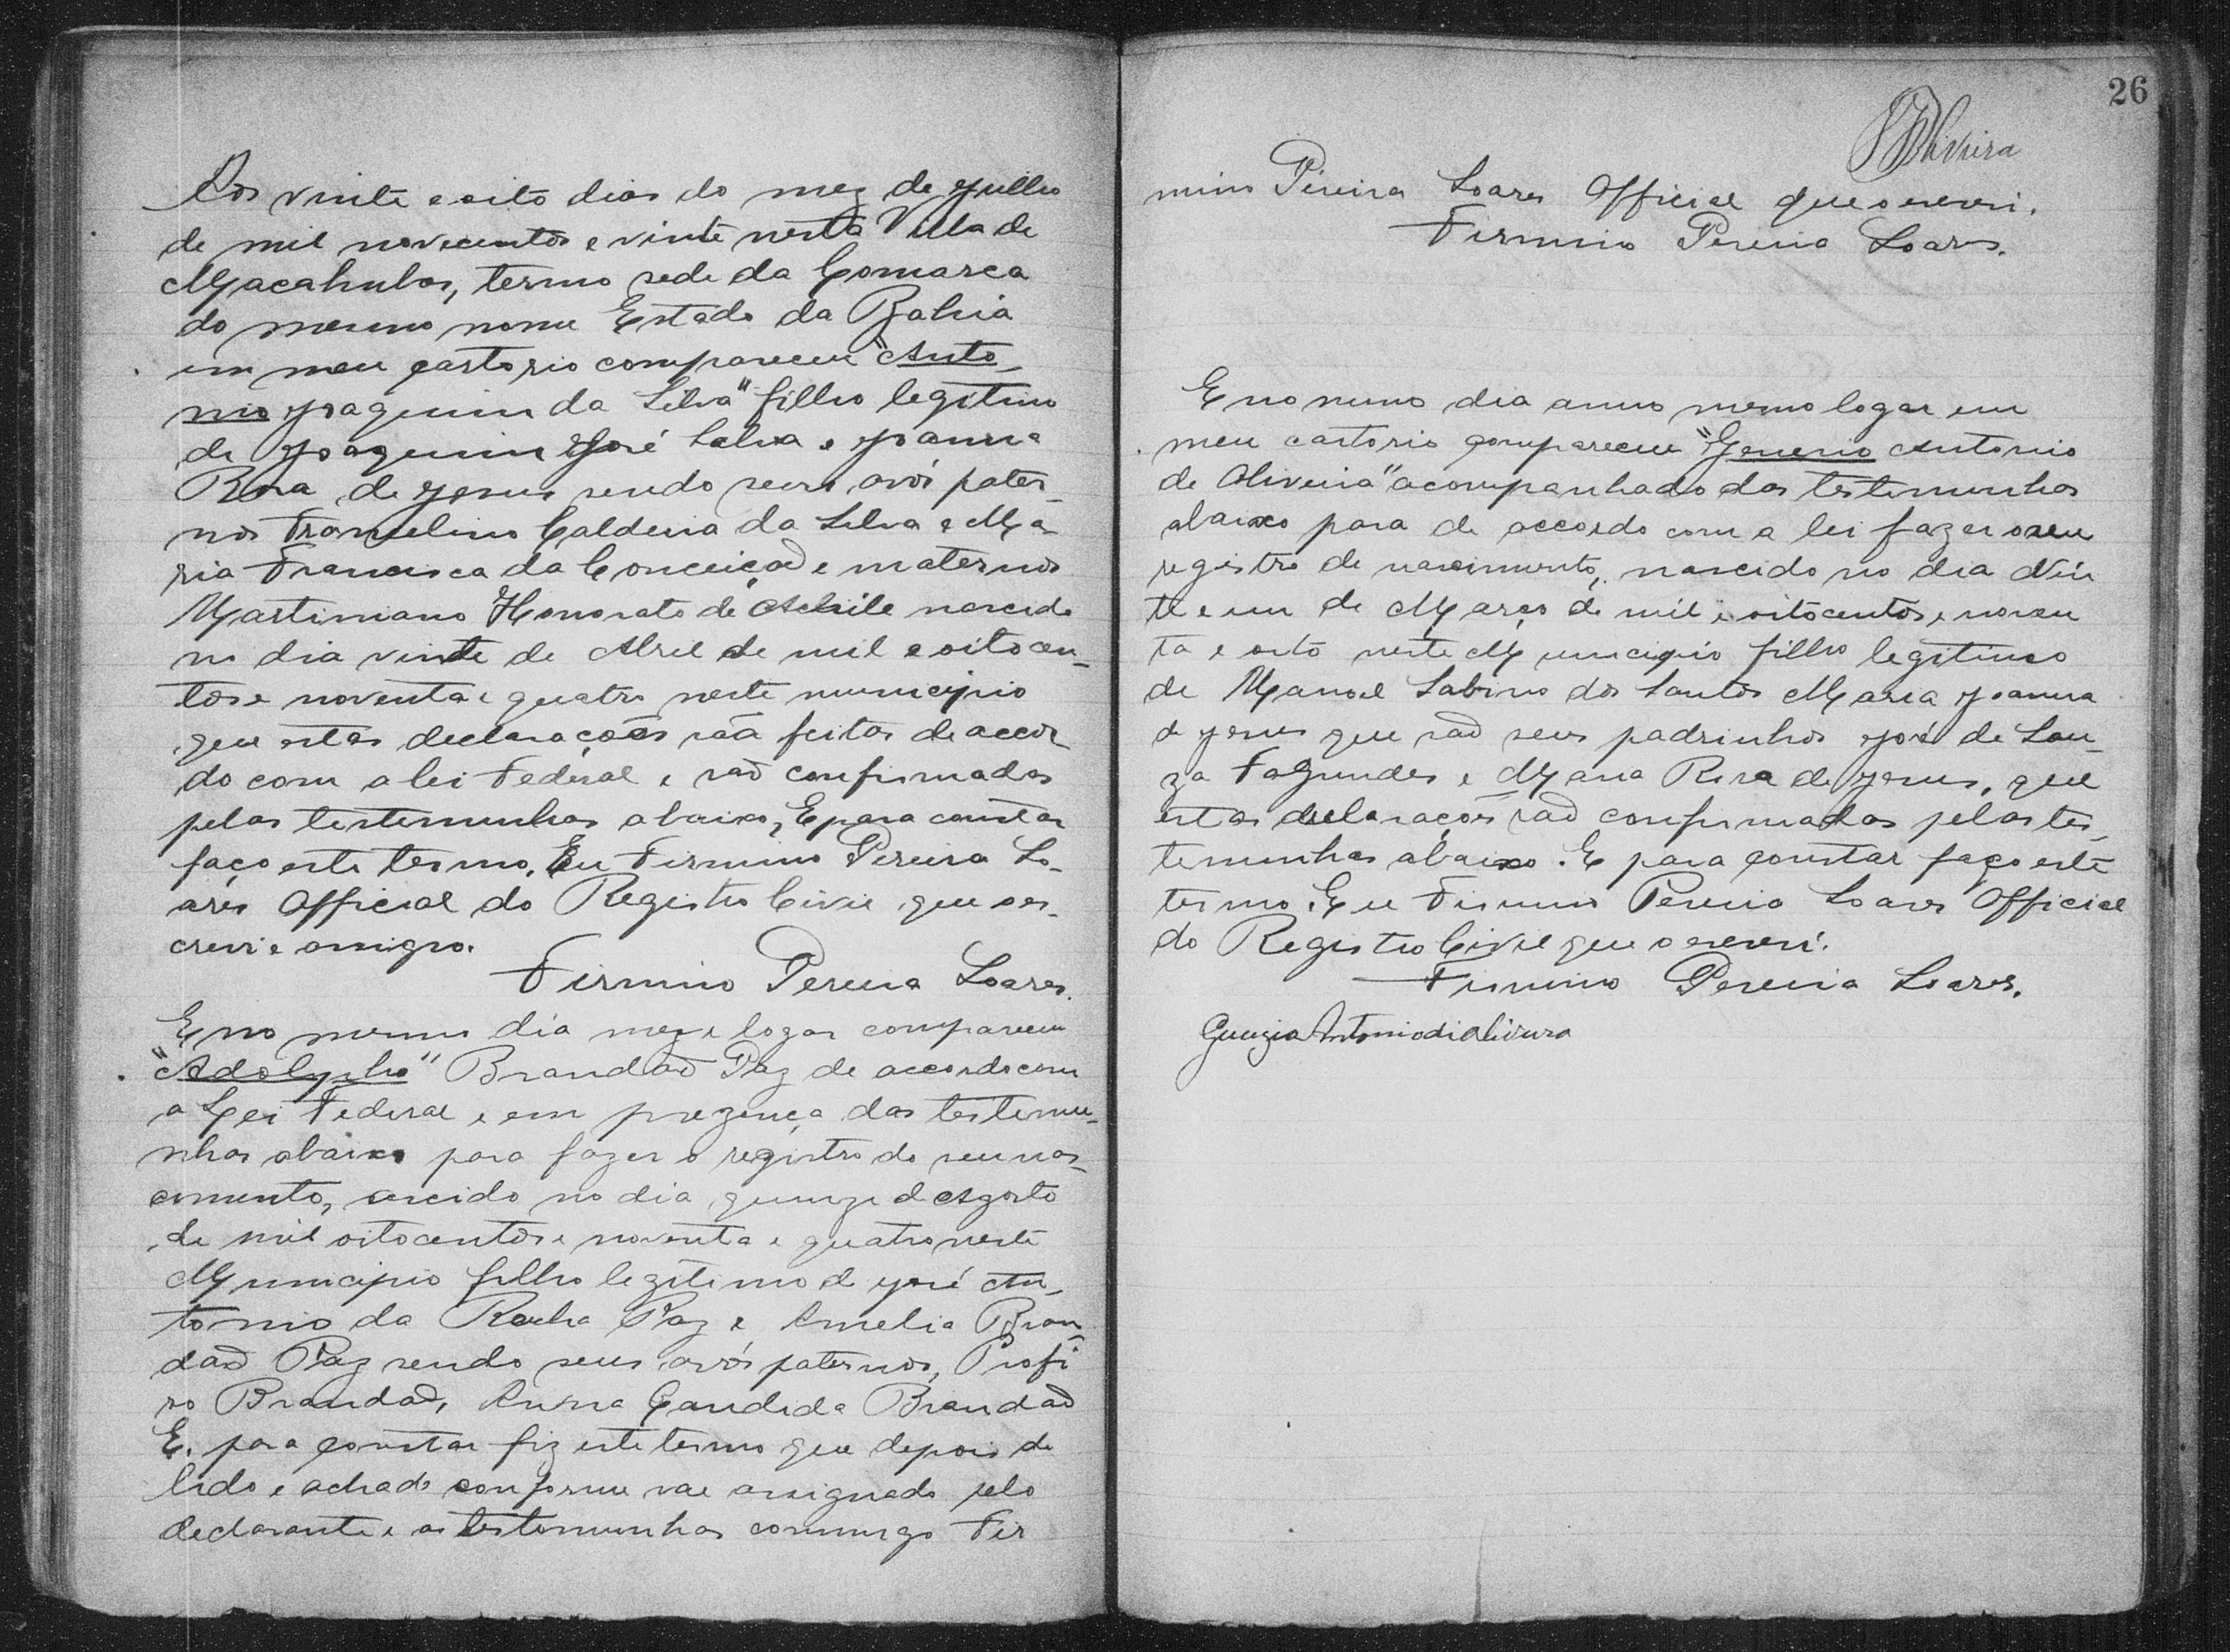 Aos vinte e oito dias do mez de Julho
de mil novecentos e vinte nesta Villa de
Macahubas, termo sede da Comarca
do mesmo nome Estado da Bahia
em meu cartorio compareceu "Anto-
nio Joaquim da Silva" filho legitimo
de Joaquim José Salva e Joanna
Rosa de Jesus sendo seus avós pater-
nos Franquelino Caldeira da Silva e Ma-
ria Francisca da Conceição e maternos
Martiniano Honorato de nascido
no dia vinte de Abril de mil e oitocen-
tos e noventa e quatro neste municipio
que estas declarações são feitas de accor-
do com a lei Federal e são confirmadas
pelas testemunhas abaixo, E para constar
faço este termo. Eu Firmino Pereira So-
ares Official do Registro Civil que es-
crevi e assigno.
Firmino Pereira Soares.
E no mesmo dia mez e logar compareceu
"Adolpho" Brandão Paz de accordo com
a Lei Federal e em prezença das testemu-
nhas abaixo para fazer o registro do seu nas-
cimento, nascido no dia quinze d Agosto
de mil oitocentos e noventa e quatro neste
Municipio filho legitimo d José An-
tonio da Rocha Paz e Amelia Bran-
dão Paz sendo seus avós paternos, Profi
ro Brandão, Anna Candida Brandão
E. para constar fiz este termo que depois de
lido e achado conforme vae assignado pelo
declarante e as testemunhas commigo Fir
26
Oliveira
mino Pereira Soares Official que o escrevi.
Firmino Pereira Soares.
E no mesmo dia anno mesmo logar em
meu cartorio compareceu "Generio Antonio
de Oliveira" acompanhado das testemunhas
abaixo para de accordo com a lei fazer o seu
registro de nascimento, nascido no dia Vin
te e um de Março de mil e oitocentos e noven
ta e oito neste Municipio filho legitimo
de Manoel Sabino dos Santos Maria Joanna
de Jesus que são seus padrinhos José de Sou-
za Fagundes e Maria Rosa de Jesus, que
estas declarações são confirmadas pelas tes-
temunhas abaixo. E para constar faço este
termo. Eu Firmino Pereira Soares Official
do Registro Civil que o escrevi.
Firmino Pereira Soares.
Antonio di Olivura